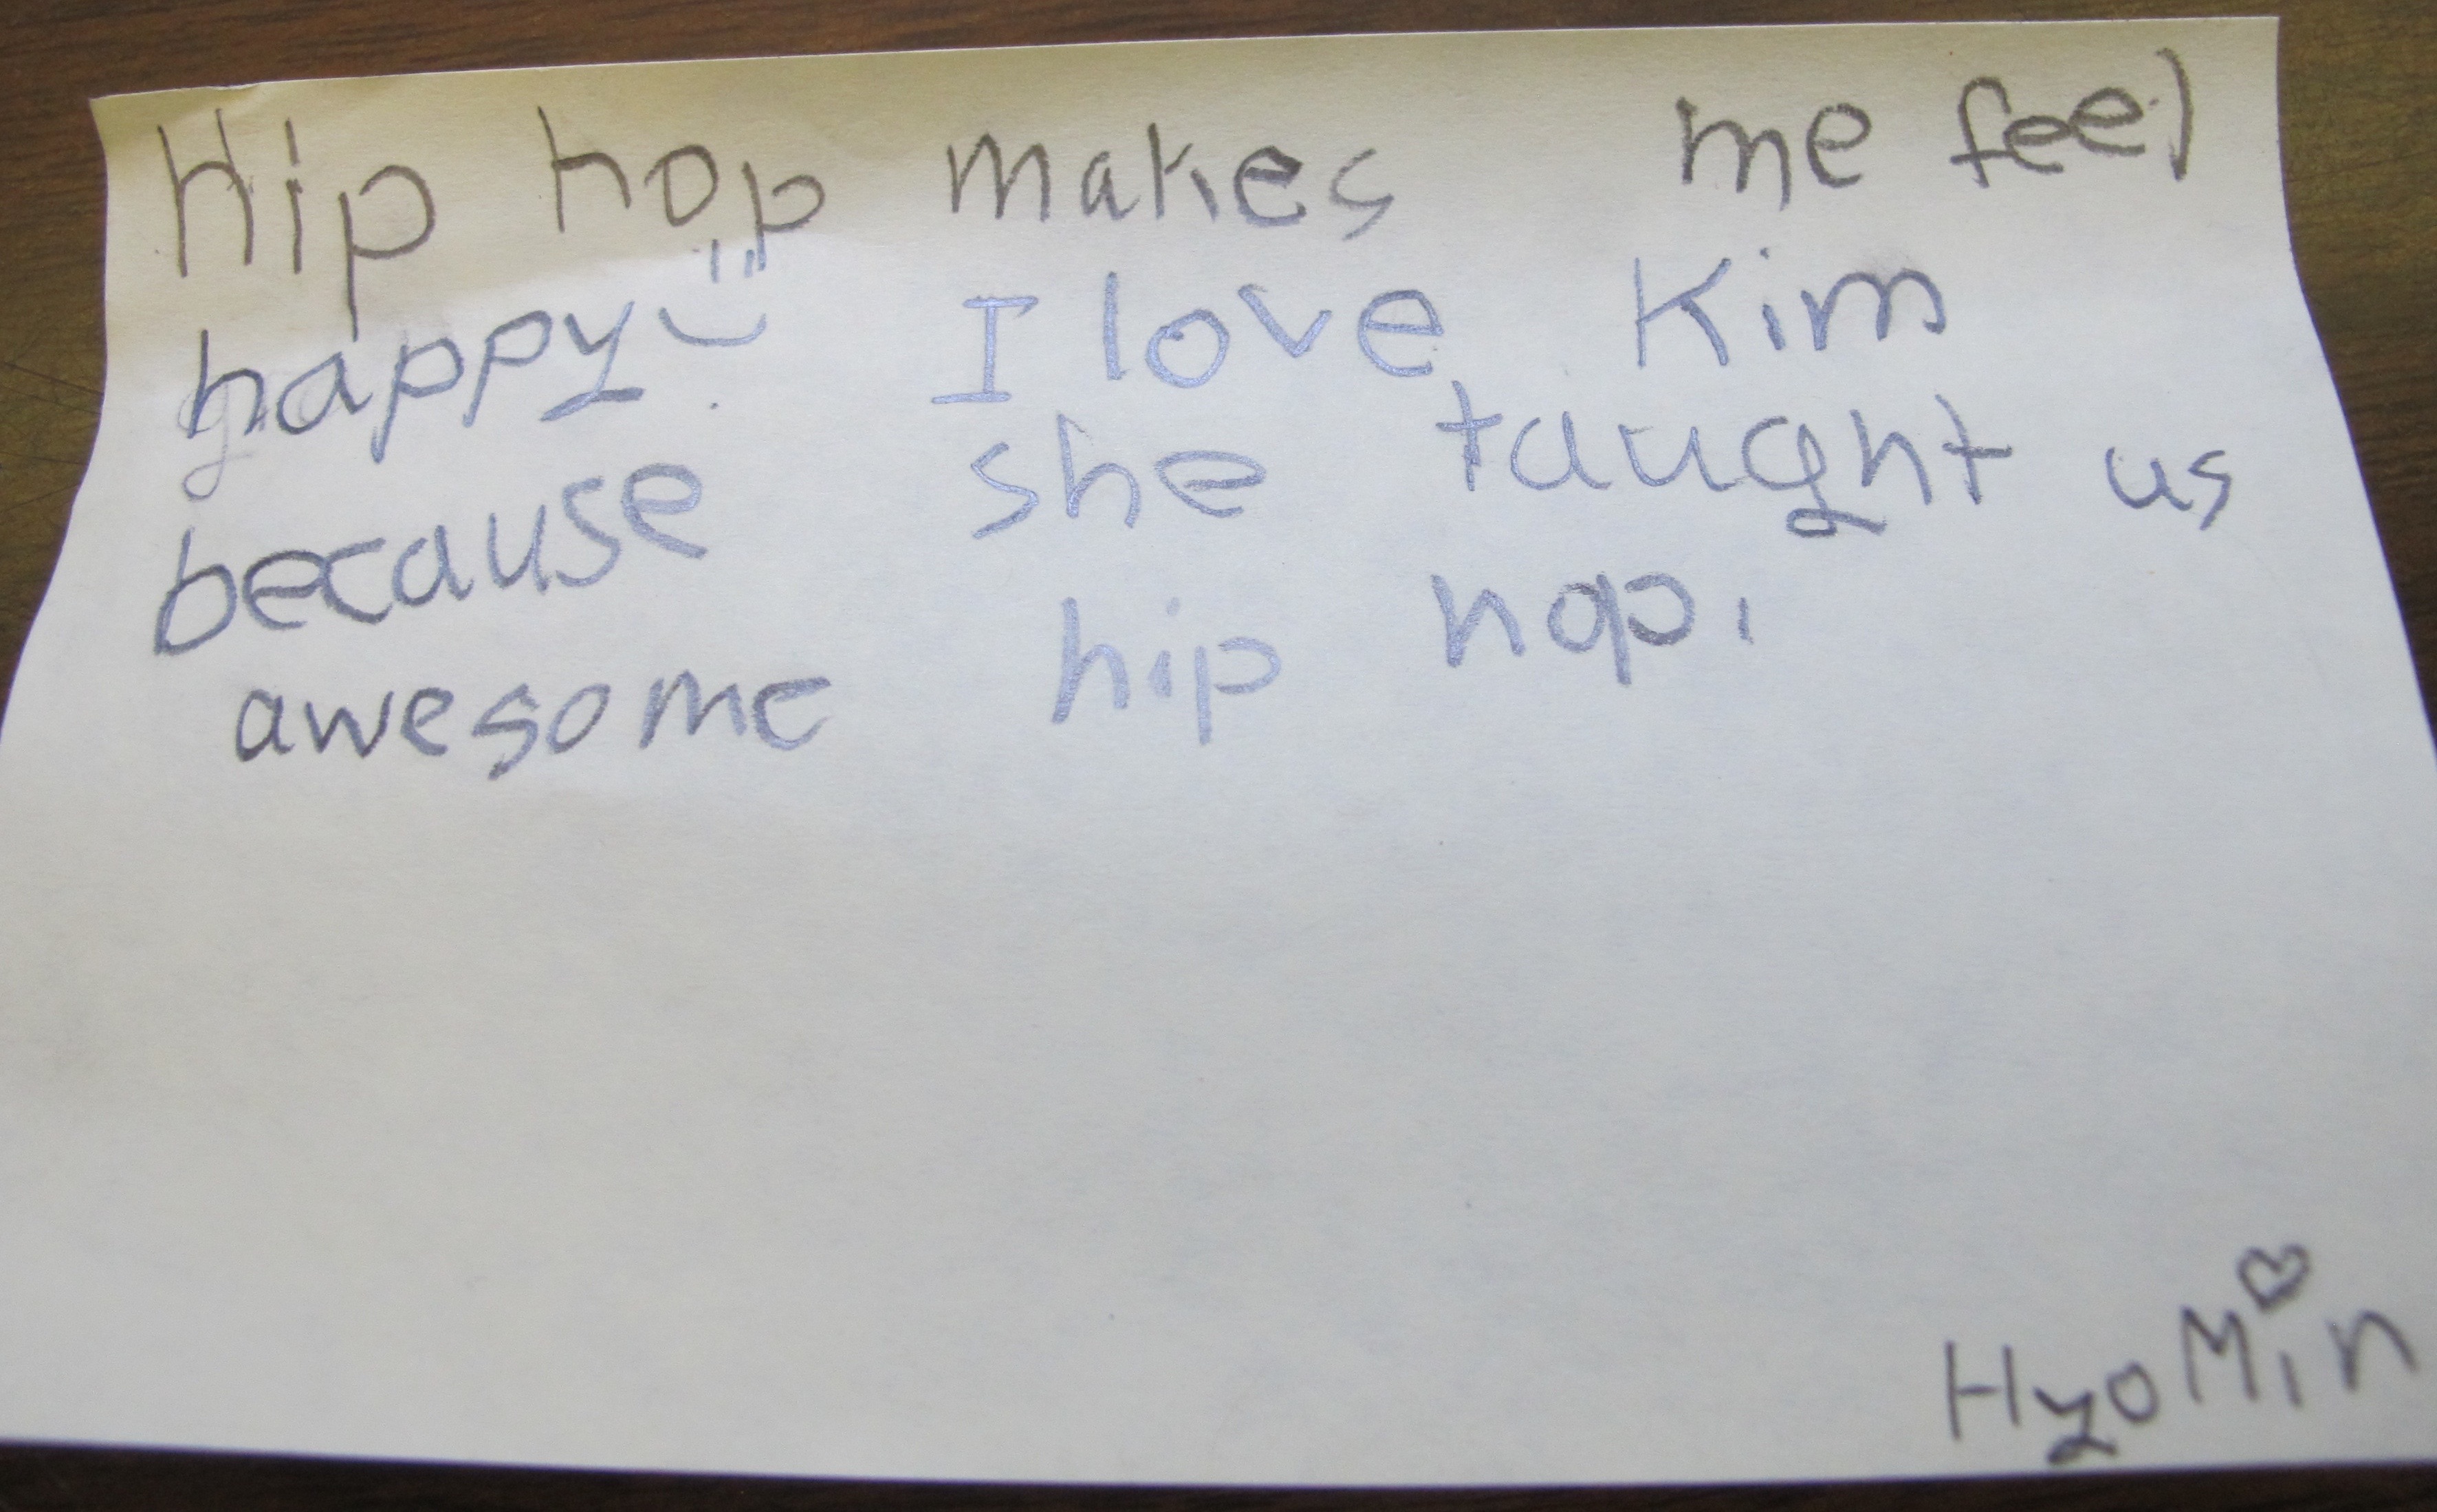 Hip hop makes me feel
happy :) I love Kim
because she taught us
awesome hip hop.
HyoMin